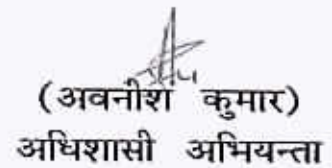 (अवनीश कुमार)
अधिशासी अभियन्ता